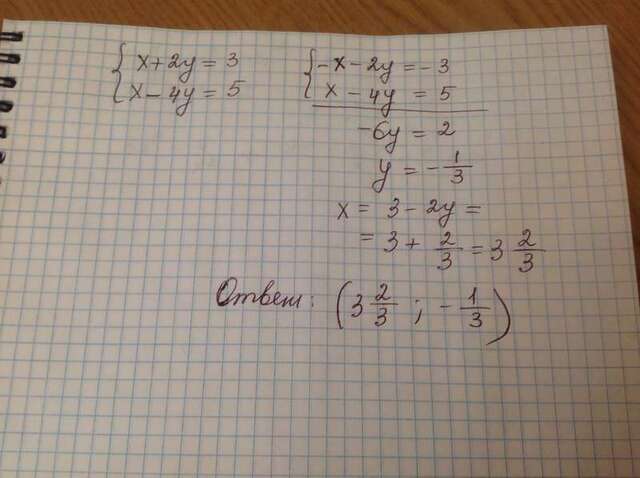 { x + 2y = 3
x - 4y = 5
{ -x - 2y = -3
x - 4y = 5
-6y = 2
y = -1/3
x = 3 - 2y =
= 3 + 2/3 = 3 2/3
Ответ: (3 2/3 ; -1/3)